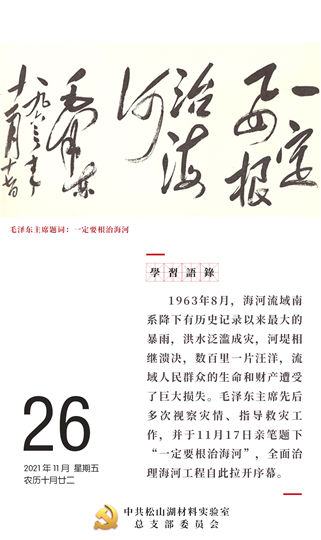 一定
要根
治海
河
毛泽东
一九六三年
十一月十七日
毛泽东主席题词：一定要根治海河
學習語錄
1963年8月，海河流域南
系降下有历史记录以来最大的
暴雨，洪水泛滥成灾，河堤相
继溃决，数百里一片汪洋，流
域人民群众的生命和财产遭受
了巨大损失。毛泽东主席先后
多次视察灾情、指导救灾工
作，并于11月17日亲笔题下
“一定要根治海河”，全面治
理海河工程自此拉开序幕。
26
2021年11月 星期五
农历十月廿二
中共松山湖材料实验室
总支部委员会